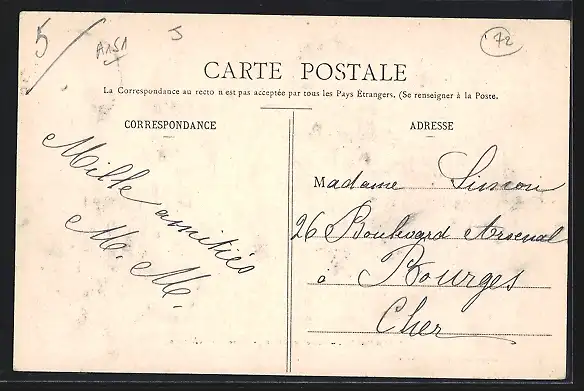 5/
A151
5
72
CARTE POSTALE
La Correspondance au recto n est pas acceptée par tous les Pays Étrangers, (Se renseigner à la Poste.
CORRESPONDANCE
Mille amitiés
M. M.
ADRESSE
Madame Simon
26 Boulevard Arsenal
à Bourges
Cher